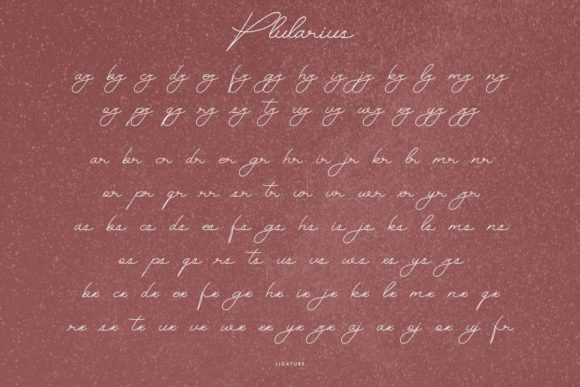 Plularius
az bz cz dz ez fz gz hz iz jz kz lz mz nz
oz pz qz rz sz tz uz vz wz xz yz zz
ar br cr dr er gr hr ir jr kr lr mr nr
or pr qr rr sr tr ur vr wr xr yr zr
as bs cs ds es fs gs hs is js ks ls ms ns
os ps qs rs ts us vs ws xs ys zs
bx cx dx ex fx gx hx ix jx kx lx mx nx qx
rx sx tx ux vx wx xx yx zx aj ax oj ox uj fr
LIGATURE